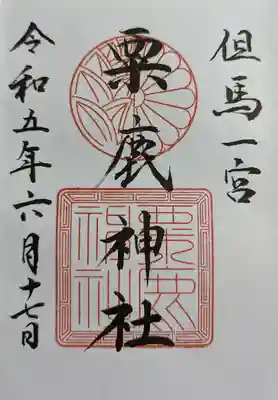 但馬一宮
粟鹿神社
令和五年六月十七日